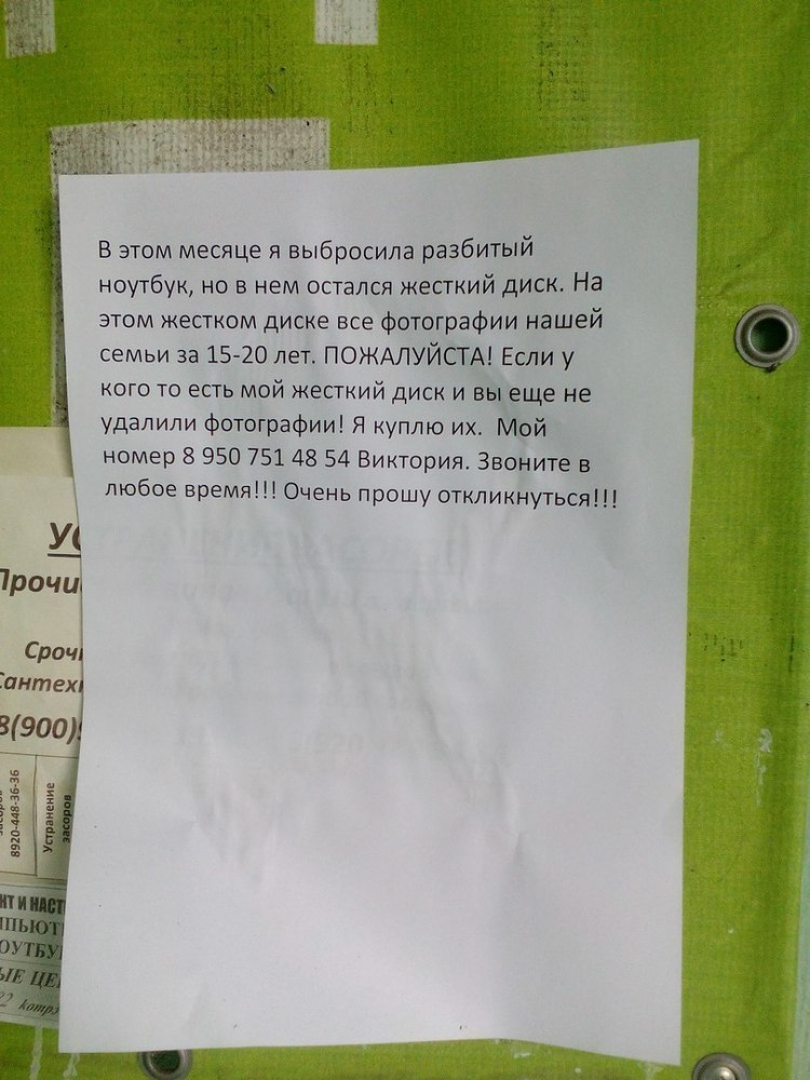 В этом месяце я выбросила разбитый
ноутбук, но в нем остался жесткий диск. На
этом жестком диске все фотографии нашей
семьи за 15-20 лет. ПОЖАЛУЙСТА! Если у
кого то есть мой жесткий диск и вы еще не
удалили фотографии! Я куплю их. Мой
номер 8 950 751 48 54 Виктория. Звоните в
любое время!!! Очень прошу откликнуться!!!
Сроч
8(900)
8920-448-36-36
Устранение
засоров